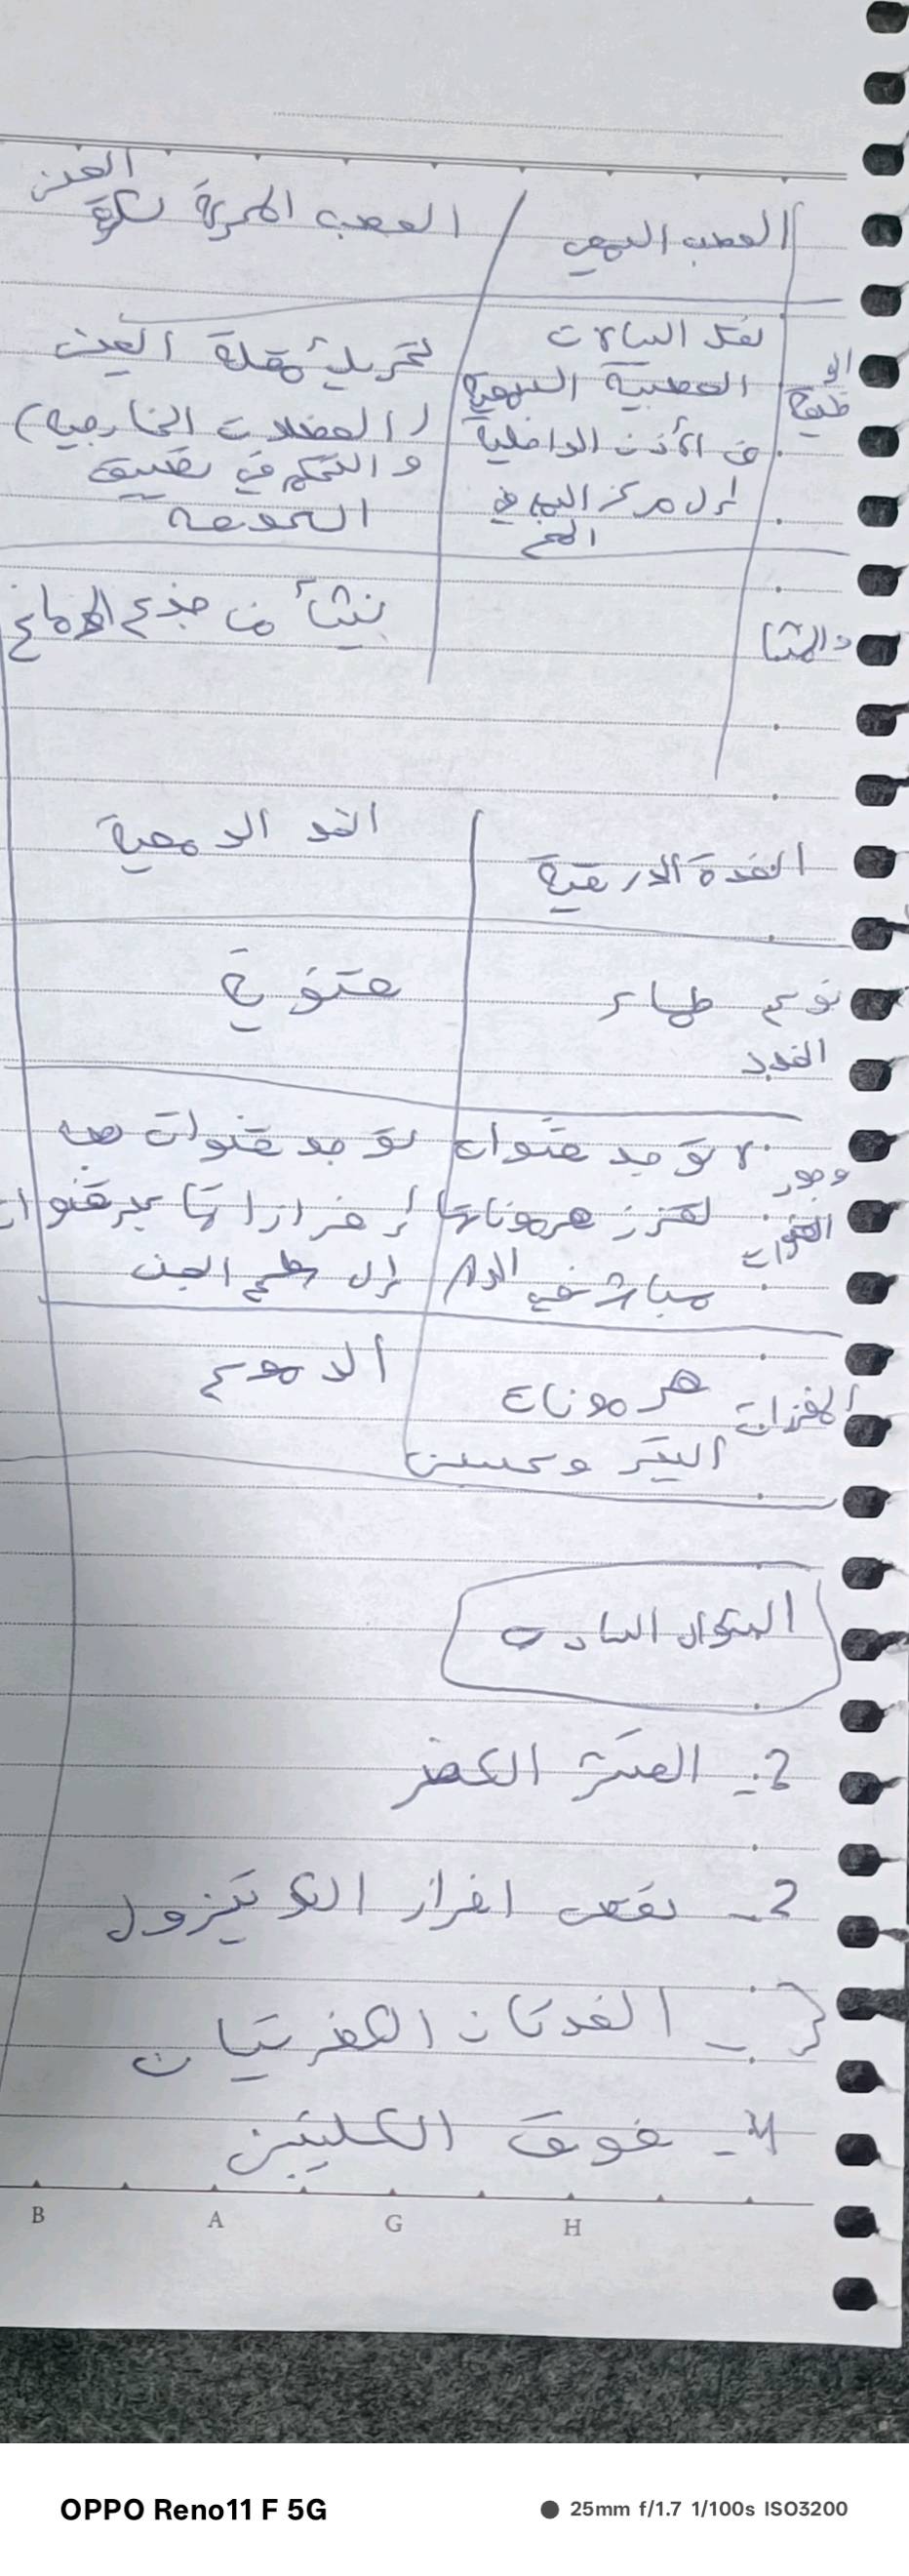 العصب السمعي / العصب المحركة لكرة العين
الوظيفة
نقل السيالات
العصبية السمعية
من الأذن الداخلية
إلى مركز السمع في
المخ
تحريك مقلة العين
(العضلات الخارجية)
والتحكم في تضييق
المنشأ
ينشأ من جذع الدماغ
الغدة الدرقية
الغدد الدمعية
نوع صماء
الغدد
قنوية
وجود القنوات
لا توجد قنوات
تفرز هرموناتها
مباشر في الدم
توجد قنوات
إفرازاتها عبر قنوات
إلى سطح العين
المفرزات
هرمونات
الدموع
السؤال السادس
2. القشر الكظر
2 - نقص افراز الكورتيزول
} - الغدتان الكظريتان
4 - فوق الكليتين
B A G H
OPPO Reno11 F 5G
25mm f/1.7 1/100s ISO3200